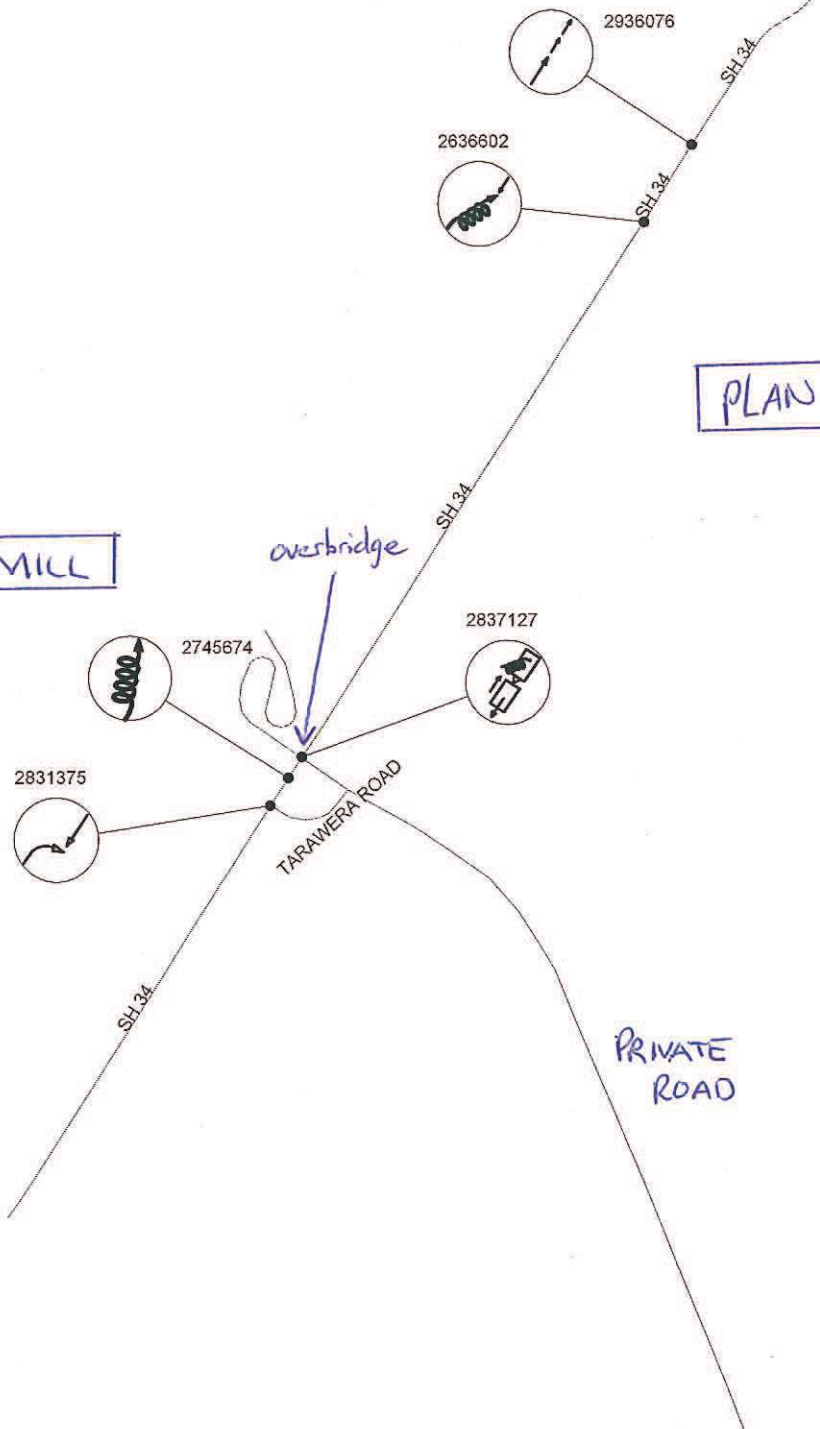 2936076
SH 34
2636602
SH 34
PLAN
SH 34
MILL
overbridge
2745674
2837127
2831375
TARAWERA ROAD
SH 34
PRIVATE
ROAD